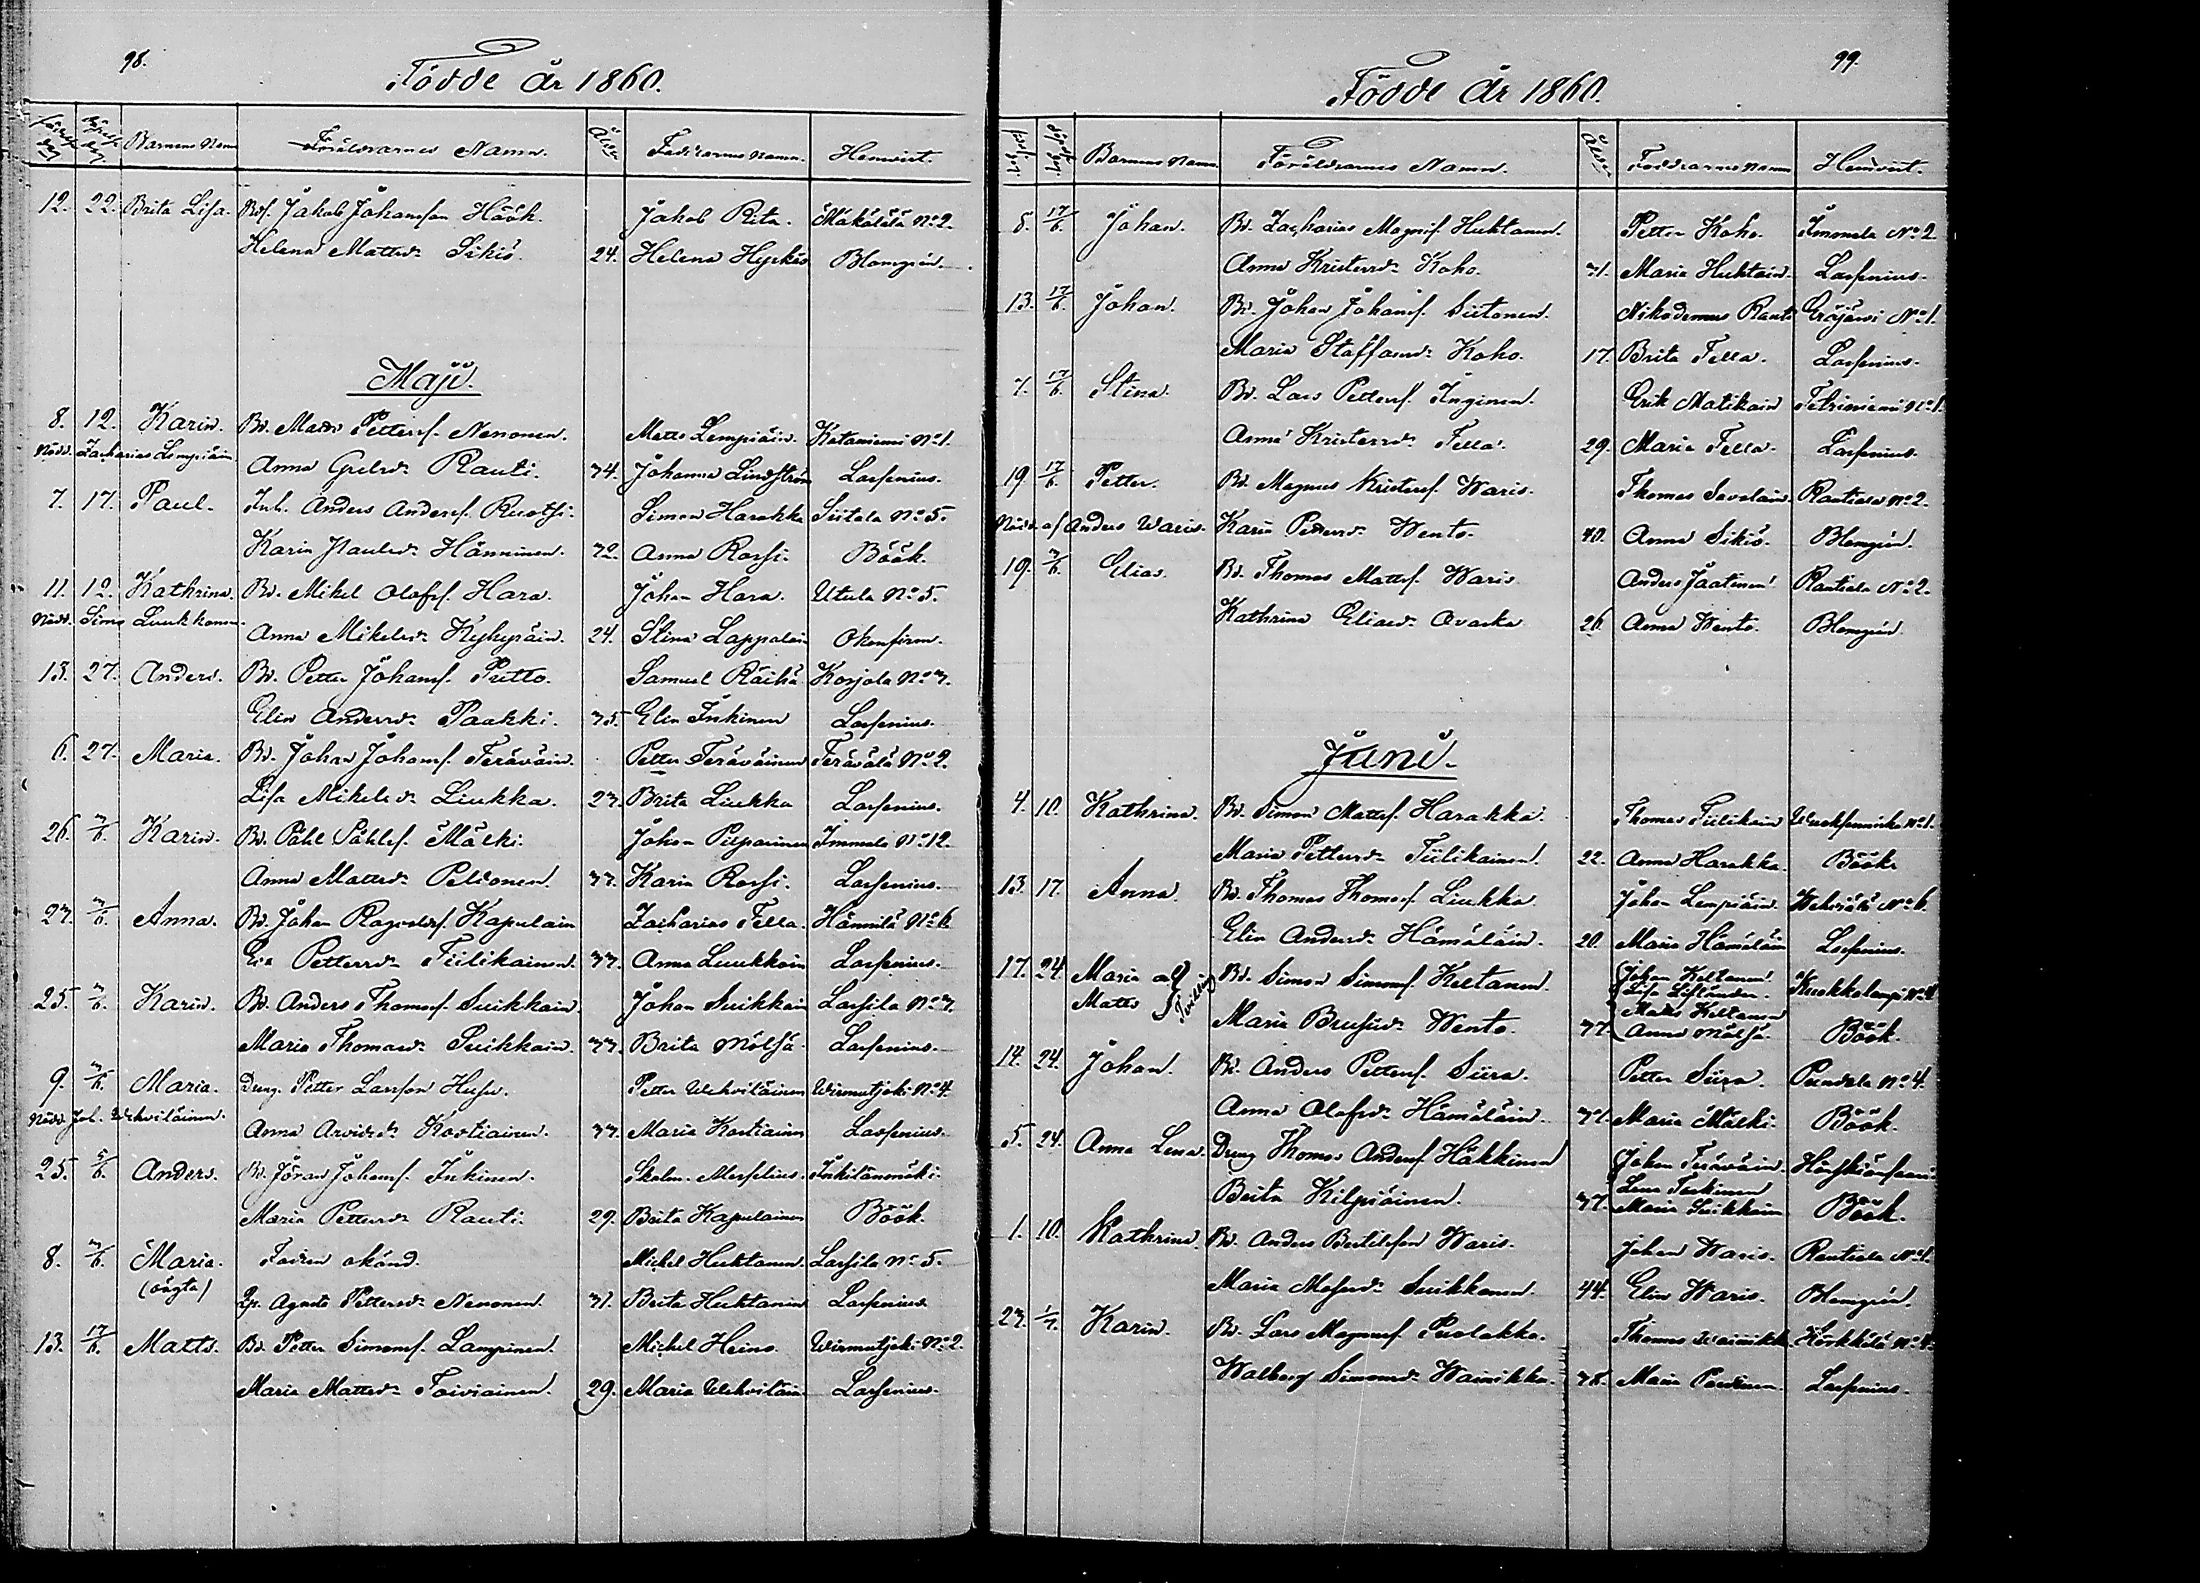 98.
Födde år 1860.
Barnens Namn Föräldrarnes Namn. Ålder Faddrarnes namn. Hemvist.
12. 22. Brita Lisa. Jakob Johansson Höök. Jakob Rita. Mäkälä No 2.
Helena Mattsd:r Sikiö. 24. Helena Hyrkäs Blomgrén.
Maji.
8. 12. Karin. Bd. Matts Petterss. Nenonen. Matts Lempiäin. Kataniemi No 1.
Nödd. Zacharias Lempiäin. Anna Gretsd:r Rauti. 34. Johanna Lindström Lasenius.
7. 17. Paul. Inh. Anders Anderss. Ruotsi. Simon Harakka Siitola No 5.
Karin Paulsd:r Hänninen. 32. Anna Rossi. Böök.
11. 12. Kathrina. Bd. Mikel Olofss. Hara. Johan Hara. Utula No 5.
Nödd. Simo Luukkonen Anna Mikelsd:r Kyhyräin. 24. Stina Lappalain
13. 27. Anders. Bd. Petter Johanss. Putto. Samuel Räihä Korjola No 3.
Elin Andersd:r Paakki. 35. Elin Inkinen Lasenius.
6. 27. Maria. Bd. Johan Johanss. Teräväin. Petter Teräväinen Terävälä No 2.
Lisa Mikelsd:r Liukka. 23. Brita Liukka Lasenius.
26. 3/6. Karin. Bd. Påhl Påhlss. Mälki. Johan Pilpainen Immola No 12.
Anna Mattsd:r Peltonen. 33. Karin Rossi. Lasenius.
23. 3/6. Anna. Bd. Johan Kapulain Zacharias Tella. Hännilä No 6.
Eva Pettersd:r Tiilikainen. 33. Anna Luukkain Lasenius.
25. 3/6. Karin. Bd. Anders Thomass. Suikkain. Johan Suikkain Lassila No 3.
Maria Thomasd:r Suikkain. 33. Brita Mölsä Lasenius.
9. 3/6. Maria. Dreng. Petter Larsson Husu. Petter Wehviläinen Wirmutjoki No 4.
Nödd. Joh. Wehviläinen. Anna Arvidsd:r Kostiainen. 33. Maria Kostiainen Lasenius.
25. 5/6. Anders. Bd. Jöran Johanss. Inkinen. Skolm. Meselius. Inkilänmäki.
Maria Pettersd:r Rauti. 29. Brita Kapulainen Böök.
8. 3/6. Maria. Fadren okänd. Mickel Huktanen. Lassila No 5.
(oägta) Agneta Pettersd:r Nenonen. 31. Brita Huktanen Lasenius.
13. 17/6. Matts. Bd. Petter Simonss. Lampinen. Michel Heino Wirmutjoki No 2.
Maria Mattsd:r Toiviainen. 29. Maria Wehviläin. Lasenius.
99.
Födde år 1860.
Barnens Namn. Föräldrarnes Namn. Ålder Faddrarnes Namn Hemvist.
5. 17/6. Johan. Bd. Zacharias Magniss. Huktanen. Petter Koho. Immola No 2.
Anna Kristersd:r Koho. 31. Maria Huktain. Lasenius.
13. 17/6. Johan. Bd. Johan Johanss. Siitonen. Nikodemus Rauti Eräjärvi No 1.
Maria Staffansd:r Koho. 17. Brita Tella. Lasenius.
7. 17/6. Stina. Bd. Lars Petterss. Inginen. Erik Matikain Tetriniemi No 1.
Anna Kristersd:r Tella. 29. Maria Tella. Lasenius.
19. 17/6. Petter. Bd. Magnus Kristerss. Waris. Thomas Savolain. Rautiala No 2.
Nödd. af Anders Waris. Karin Pettersd:r Wento. 40. Anna Sikiö. Blomgrén.
19. 3/6. Elias. Bd. Thomas Mattss. Waris. Anders Jaatinen Rautiala No 2.
Kathrina Eliasd:r Avaska 26. Anna Wento. Blomgrén.
Juni.
4. 10. Kathrina. Bd. Simon Mattss. Harakka. Thomas Tiilikain Wuoksenniska No 1.
Maria Pettersd:r Tiilikainen. 22. Anna Harakka. Böök.
13. 17. Anna. Bd. Thomas Thomass. Liukka. Johan Lempiäin No 6.
Elin Andersd:r Hämäläin. 20. Maria Hämäläin Lasenius.
17. 24. Maria och Bd. Simon Simonss. Keltanen. Johan Keltanen
Matts Tvilling Lisa Liflander. Kuokkalampi No 4.
Matts Keltanen
Maria Brusiid:r Wento. 37. Anna Mölsä. Böök.
14. 24. Johan. Bd. Anders Petterss. Siira. Petter Siira. No 4.
Anna Olofsd:r Hämäläin. 31. Maria Mälki. Böök.
5. 24. Anna Lena. Dreng Thomas Anderss. Häkkinen Johan Teräväin.
Lena Turkinen
Brita Kilpiäinen. 37. Maria Suikkain Böök.
1. 10. Kathrina. Bd. Anders Bertilsson Waris. Johan Waris. Rautiala No 1.
Maria Mosesd:r Suikkanen. 44. Elin Waris. Blomgrén.
23. 1/7. Karin. Bd. Lars Magnuss. Puolakka. Thomas Wainikka Körkkölä No 4.
Walborg Simonsd:r Wainikka. 38. Maria Lasenius.